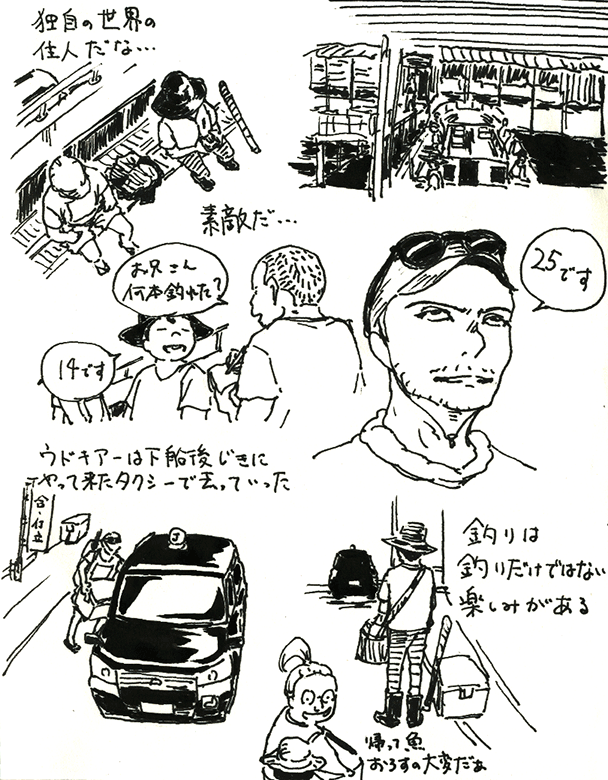 独自の世界の
住人だな…
素敵だ…
お兄さん
何本釣れた?
14です
25です
ウドキアーは下船後じきに
やって来たタクシーで去っていった
合・仕立
釣りは
釣りだけではない
楽しみがある
帰って魚
おろすの大変だぁ